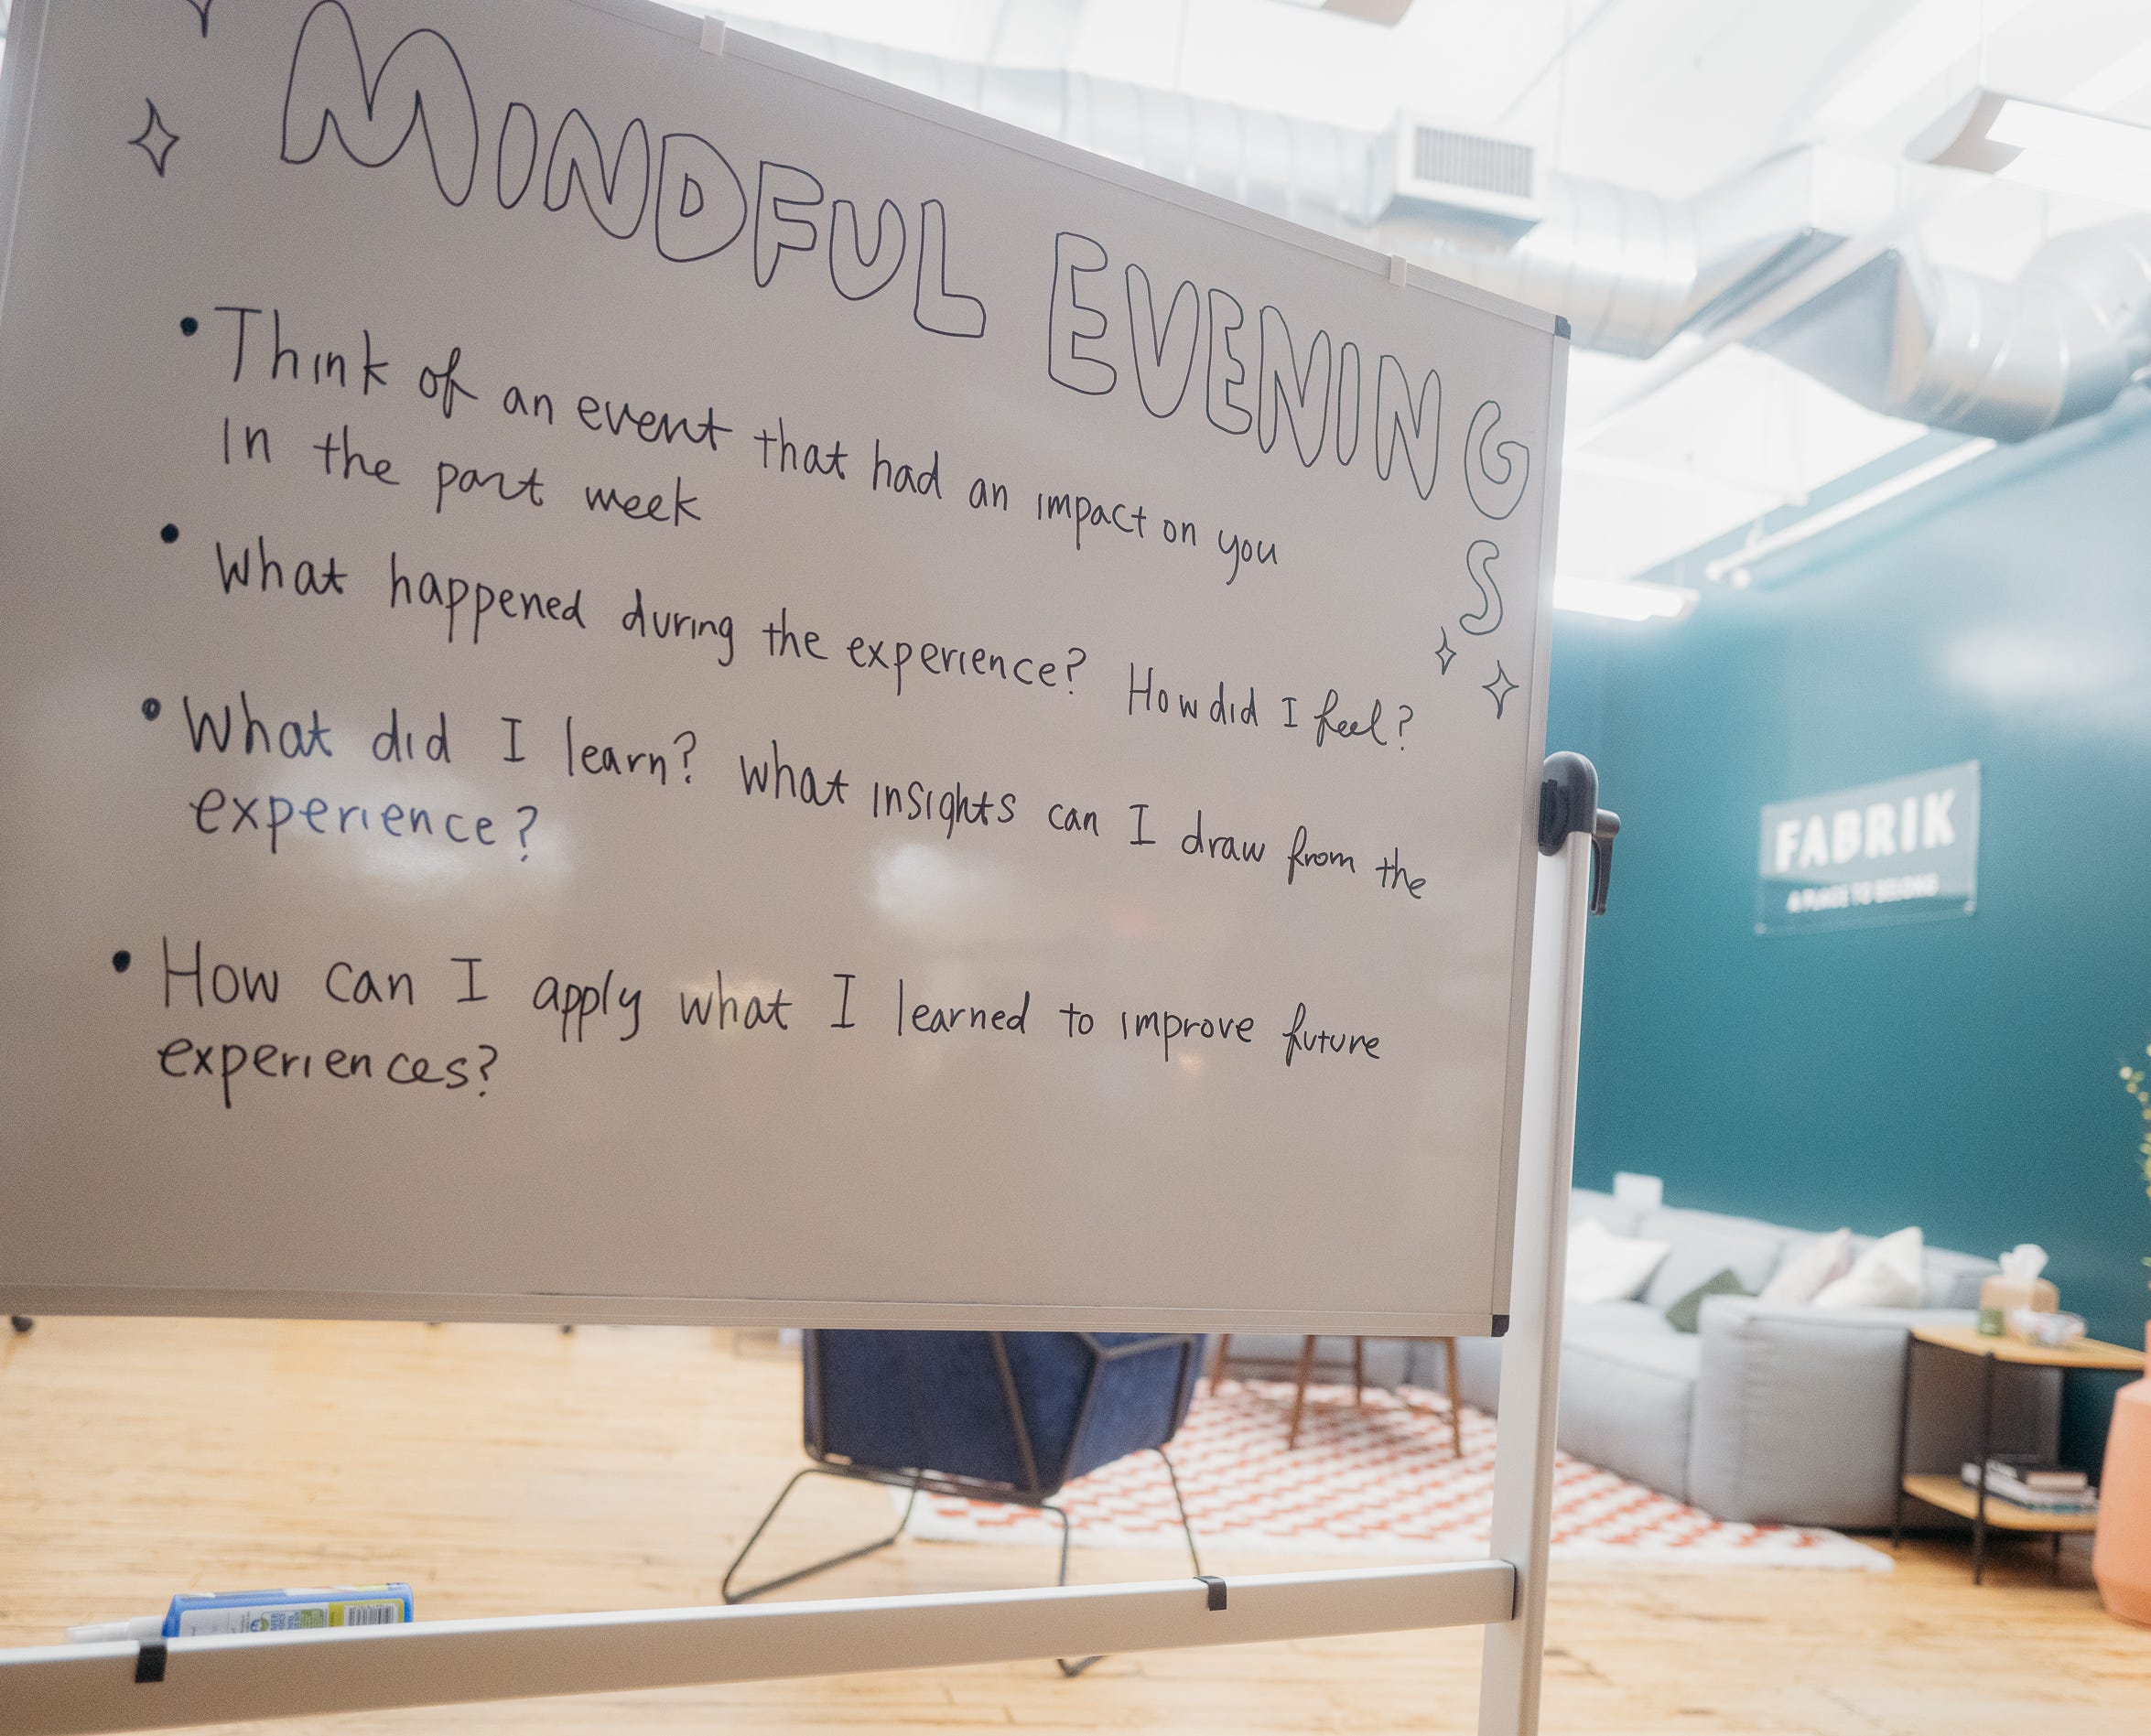 MINDFUL EVENINGS
• Think of an event that had an impact on you
in the past week
• What happened during the experience? How did I feel?
• What did I learn? What insights can I draw from the
experience?
• How can I apply what I learned to improve future
experiences?
FABRIK
A PLACE TO BELONG